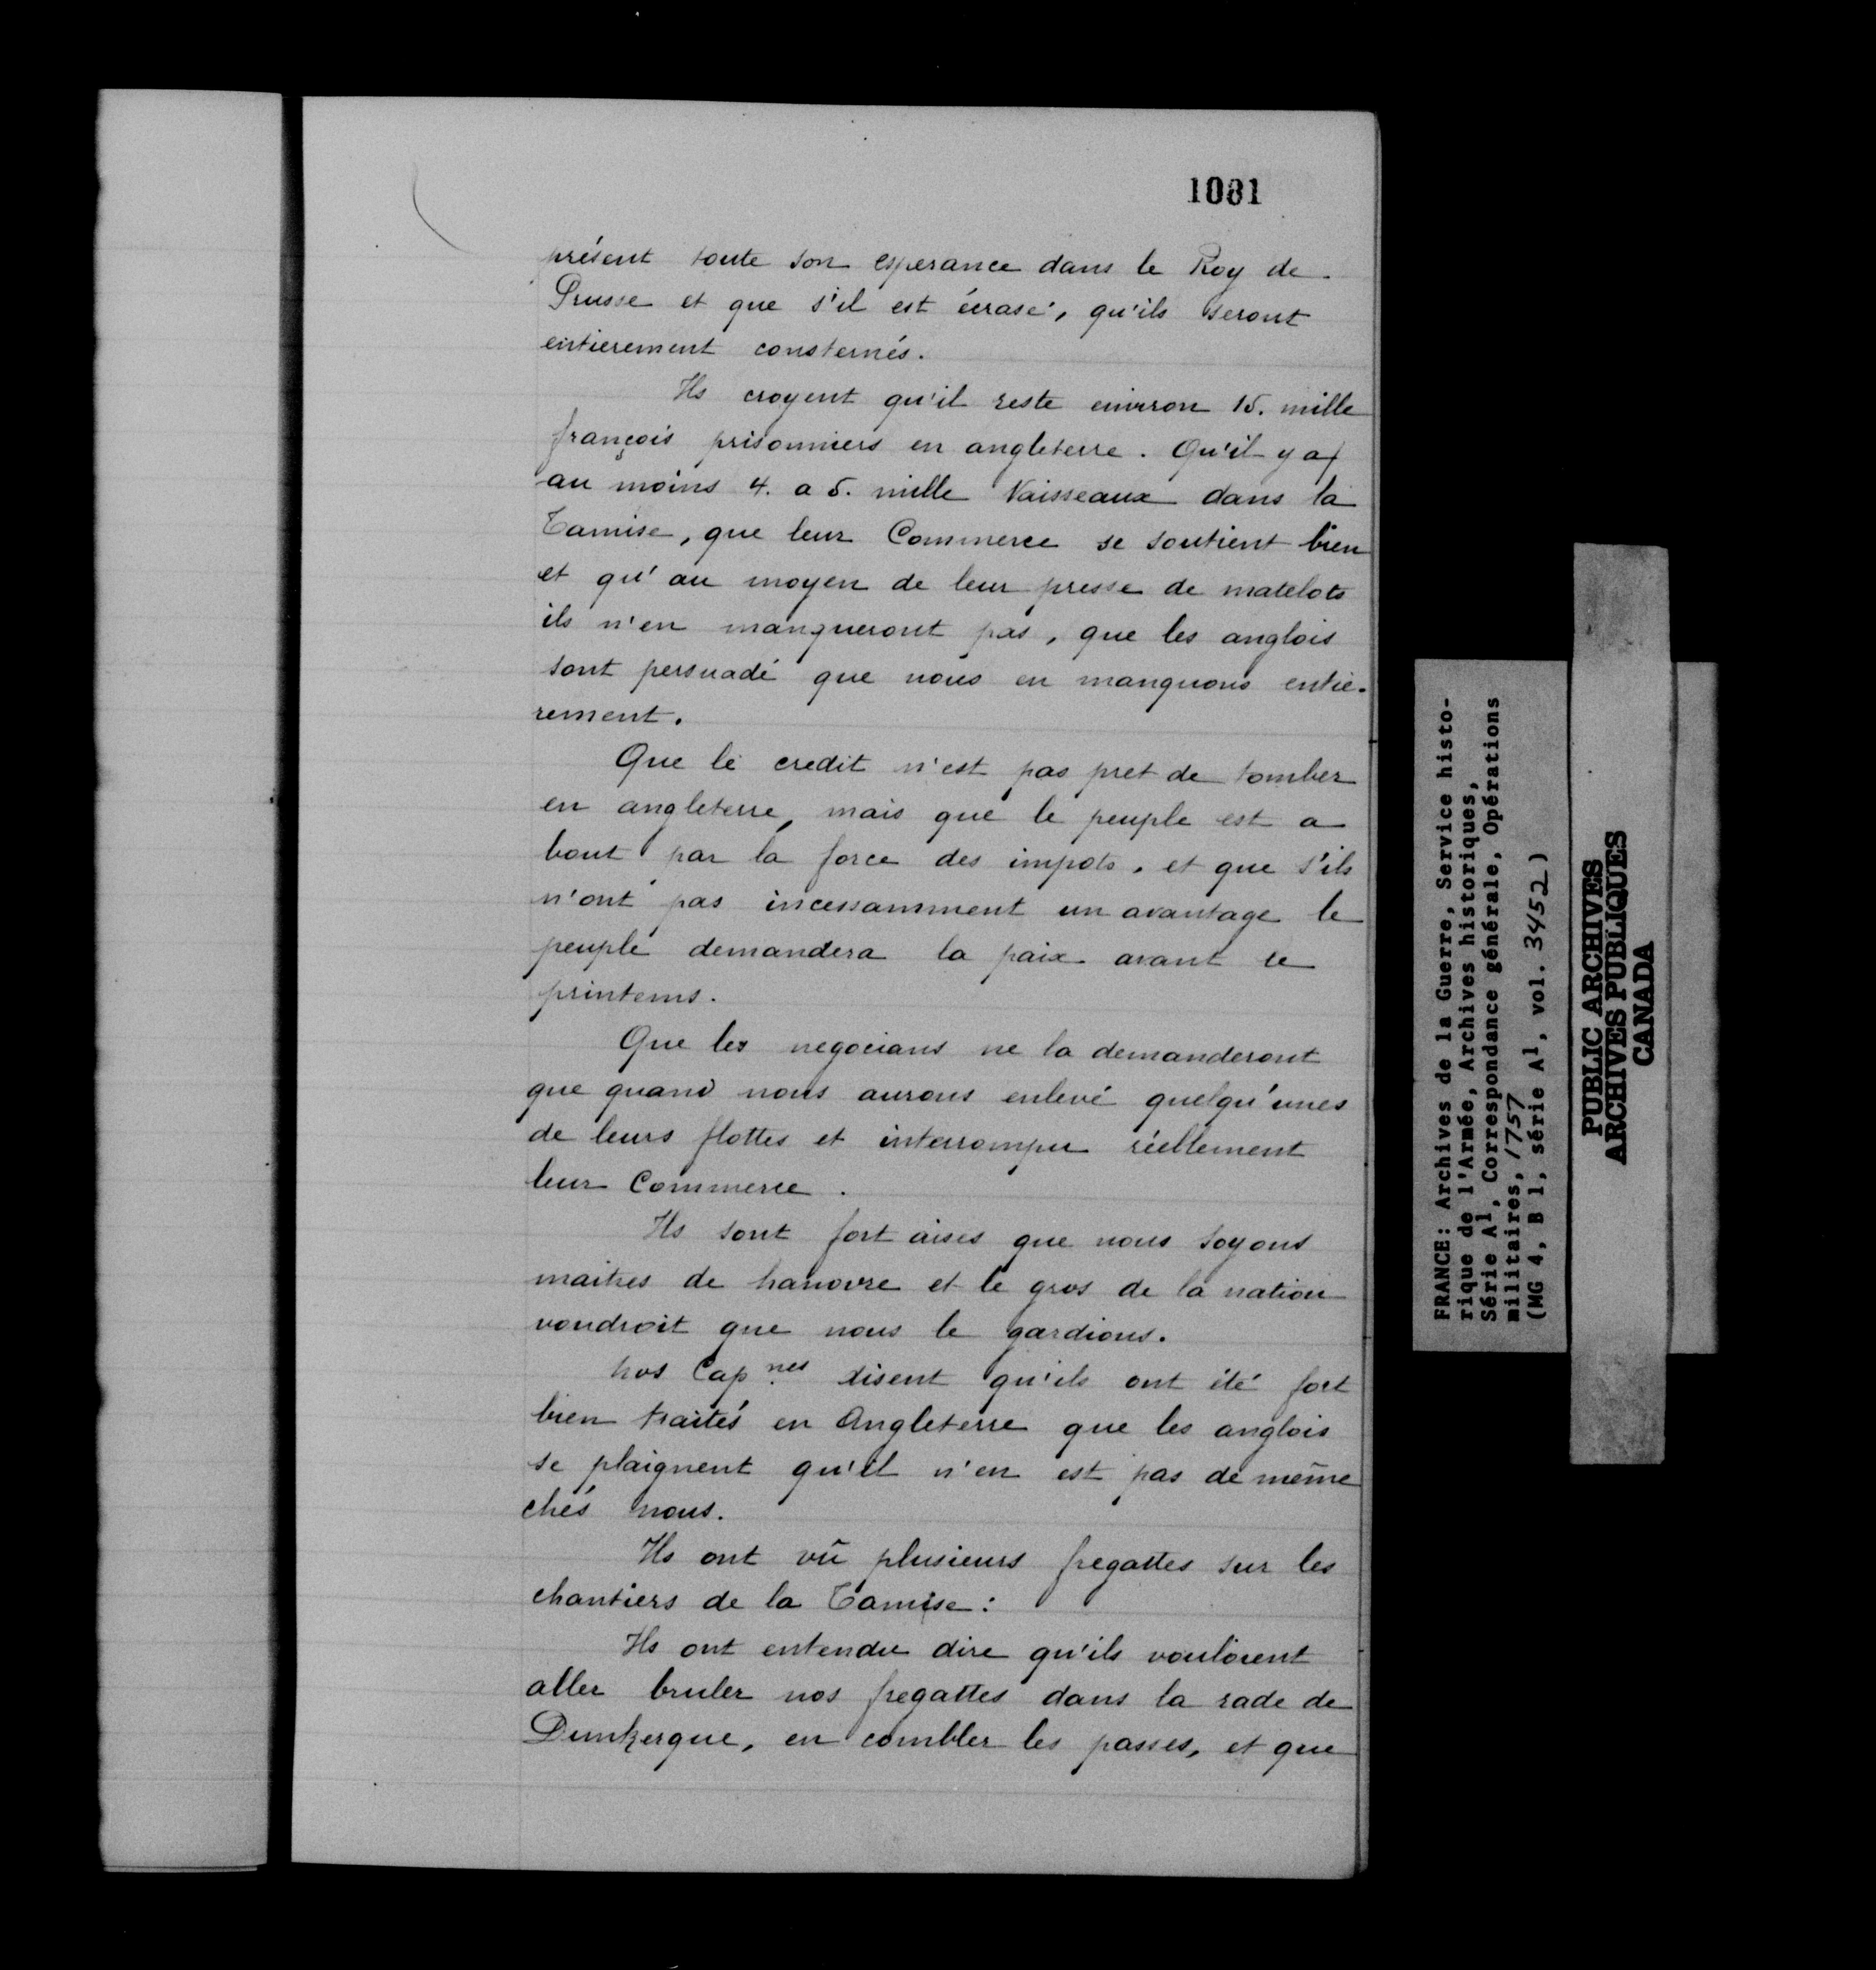 1081
présent toute son esperance dans le Roy de
Prusse et que s'il est écrasé, qu'ils seront
entierement consternés.
Ils croyent qu'il reste environ 15. mille
françois prisonniers en angleterre. Qu'il y a
au moins 4. a 5. mille Vaisseaux dans la
Tamise, que leur Commerce se soutient bien
et qu'au moyen de leur presse de matelots
ils n'en manqueront pas, que les anglois
sont persuadé que nous en manquons entie-
rement.
Que le credit n'est pas pret de tomber
en angleterre, mais que le peuple est a
bout par la force des impots, et que s'ils
n'ont pas incessamment un avantage le
peuple demandera la paix avant le
printems.
Que les negocians ne la demanderont
que quand nous aurons enlevé quelqu'unes
de leurs flottes et interrompu réellement
leur Commerce.
Ils sont fort aises que nous soyons
maitres de hanovre et le gros de la nation
voudroit que nous le gardions.
nos Cap.nes disent qu'ils ont été fort
bien traités en Angleterre que les anglois
se plaignent qu'il n'en est pas de même
chés nous.
Ils ont vû plusieurs fregattes sur les
chantiers de la Tamise:
Ils ont entendu dire qu'ils vouloient
aller bruler nos fregattes dans la rade de
Dunkerque, en combler les passes, et que
FRANCE: Archives de la Guerre, Service histo-
rique de l'Armée, Archives historiques,
Série A1, Correspondance générale, Opérations
militaires, 1757
(MG 4, B 1, série A1, vol. 3452)
PUBLIC ARCHIVES
ARCHIVES PUBLIQUES
CANADA